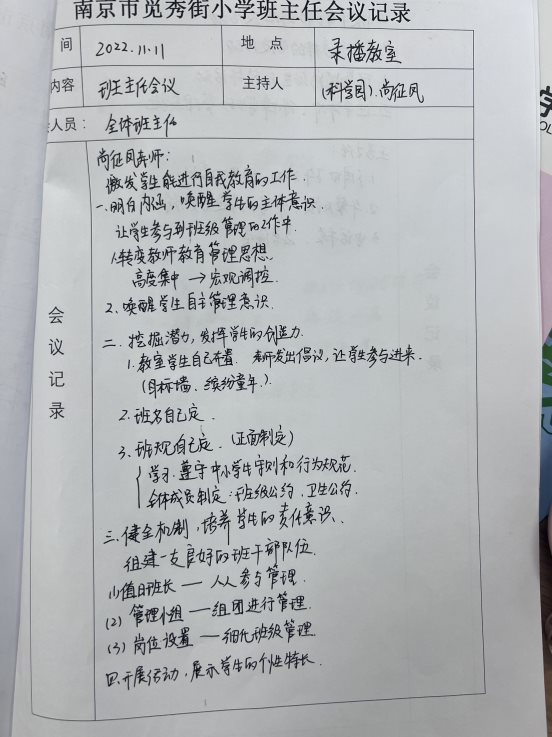 南京市觅秀街小学班主任会议记录
间 2022.11.11 地点 录播教室
内容 班主任会议 主持人 (科学园) 尚征凤
人员: 全体班主任
会议记录
尚征凤老师:
激发学生能进行自我教育的工作.
一.明白内涵,唤醒学生的主体意识.
让学生参与到班级管理的工作中.
1.转变教师教育管理思想.
高度集中 → 宏观调控.
2.唤醒学生自主管理意识.
二.挖掘潜力,发挥学生的创造力.
1.教室学生自己布置. 老师发出倡议,让学生参与进来.
(目标墙、缤纷童年.)
2.班名自己定.
3.班规自己定.(正面制定)
学习.遵守中小学生守则和行为规范.
全体成员制定:班级公约、卫生公约.
三.健全机制,培养学生的责任意识.
组建一支良好的班干部队伍.
(1)值日班长 — 人人参与管理.
(2)管理小组 — 组团进行管理.
(3)岗位设置 — 细化班级管理.
四.开展活动,展示学生的个性特长.
学